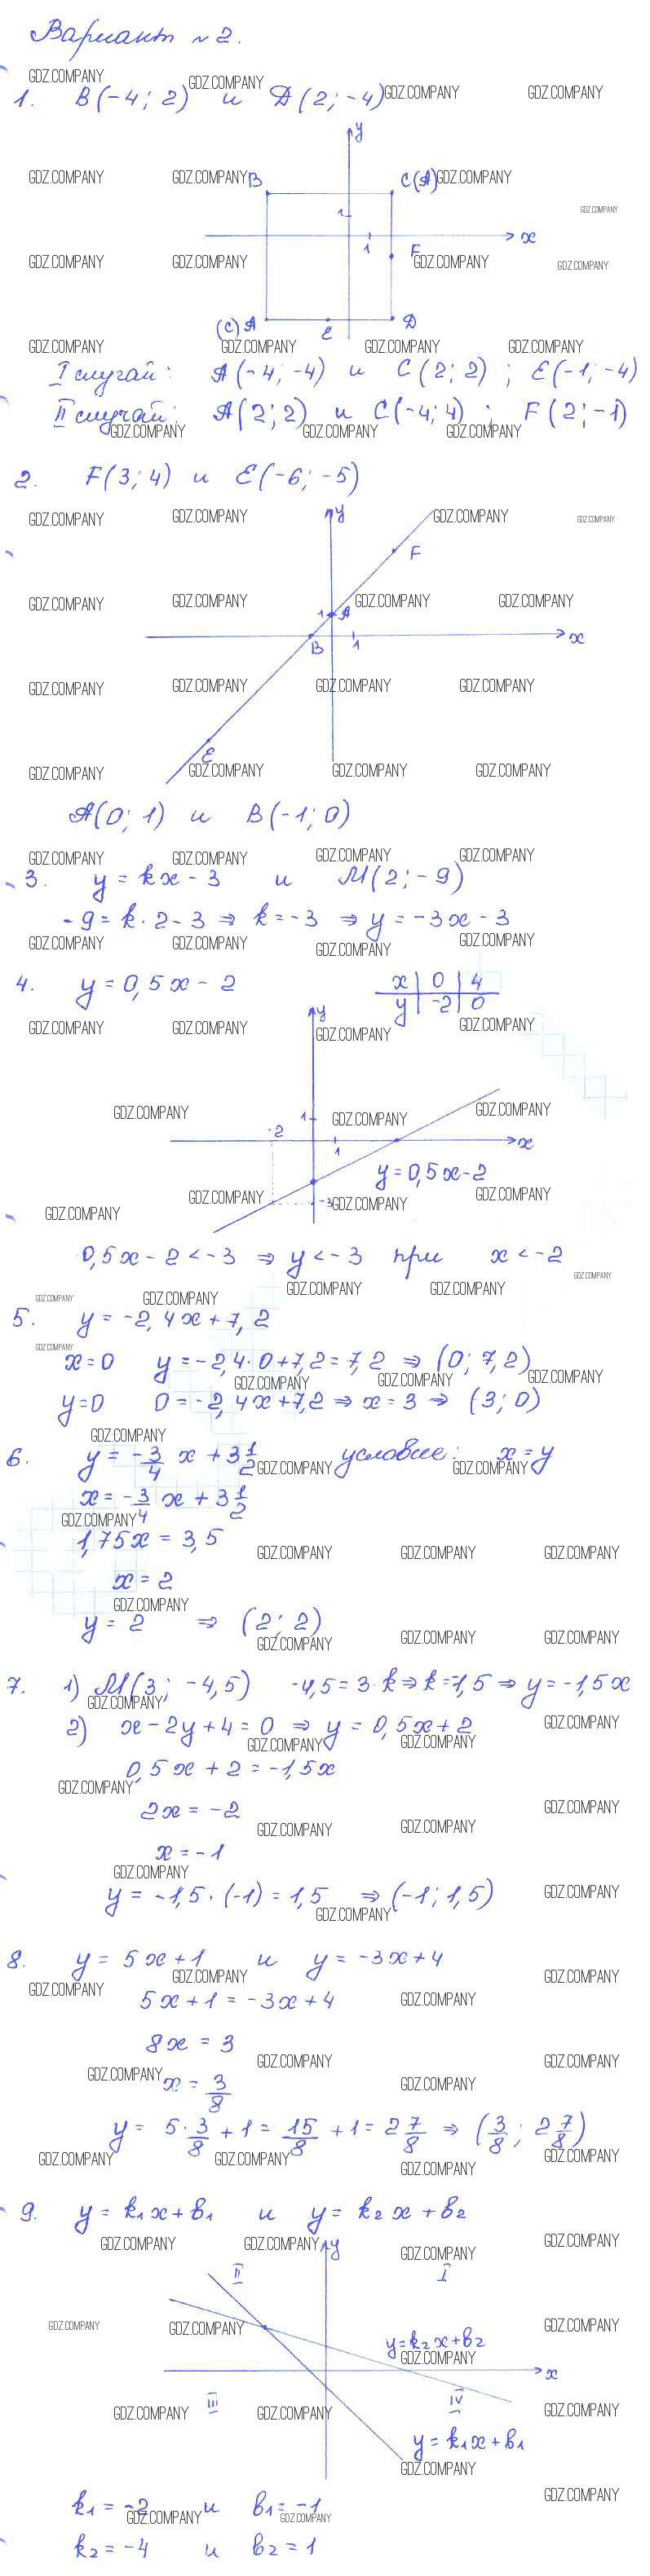 Вариант №2.
1. B(-4; 2) и D(2; -4)
y
B
C(A)
1
x
1
F
(C) A
E
D
I случай: A(-4; -4) и C(2; 2); E(-1; -4)
II случай: A(2; 2) и C(-4; 4); F(2; -1)
2. F(3; 4) и E(-6; -5)
y
F
1
A
B
1
x
E
A(0; 1) и B(-1; 0)
3. y = kx - 3 и M(2; -9)
-9 = k·2-3 ⇒ k = -3 ⇒ y = -3x - 3
4. y = 0,5x - 2
x | 0 | 4
y | -2 | 0
y
1
-2
1
x
y = 0,5x-2
-3
0,5x - 2 < -3 ⇒ y < -3 при x < -2
5. y = -2,4x + 7,2
x = 0 y = -2,4·0+7,2 = 7,2 ⇒ (0; 7,2)
y=0 0 = -2,4x+7,2 ⇒ x = 3 ⇒ (3; 0)
6. y = -3/4 x + 3 1/2 условие: x = y
x = -3/4 x + 3 1/2
1,75x = 3,5
x = 2
y = 2 ⇒ (2; 2)
7. 1) M(3; -4,5) -4,5 = 3·k ⇒ k = -1,5 ⇒ y = -1,5x
2) x - 2y + 4 = 0 ⇒ y = 0,5x + 2
0,5x + 2 = -1,5x
2x = -2
x = -1
y = -1,5·(-1) = 1,5 ⇒ (-1; 1,5)
8. y = 5x + 1 и y = -3x + 4
5x + 1 = -3x + 4
8x = 3
x = 3/8
y = 5·3/8 + 1 = 15/8 + 1 = 2 7/8 ⇒ (3/8; 2 7/8)
9. y = k₁x + b₁ и y = k₂x + b₂
y
II
I
y=k₂x+b₂
x
III
IV
y = k₁x + b₁
k₁ = -2 и b₁ = -1
k₂ = -4 и b₂ = 1
GDZ.COMPANY